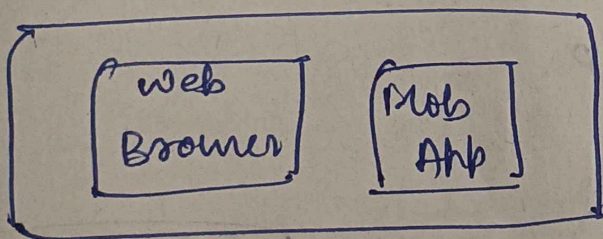 Web
Browser
Mob
App